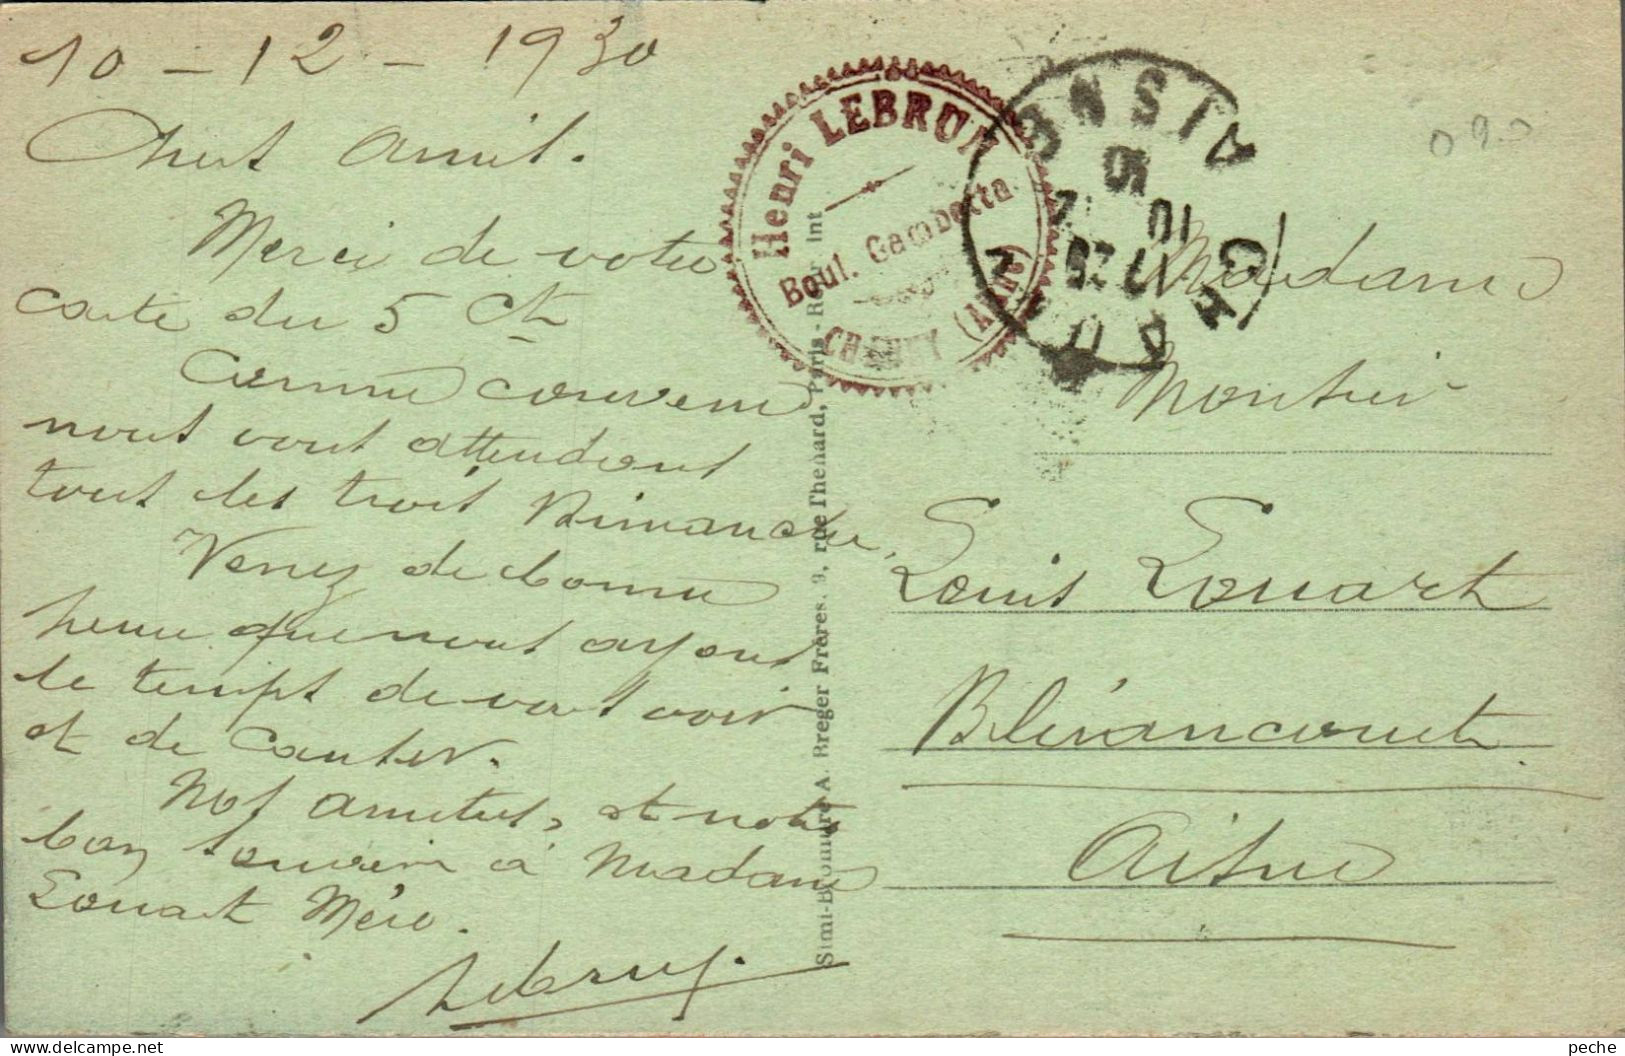 10 - 12 - 1930
Chers Amis.
Merci de votre
carte du 5 Ct
Comme convenu
nous vous attendrons
tous les trois Dimanche,
Venez de bonne
heure que nous ayons
le temps de vous voir
et de causer.
Nos amitiés, et notre
bon souvenir à Madame
Louart Mère.
Lebrun.
Henri LEBRUN
Boul. Gambetta
CHAUNY (AISNE)
CHAUNY
AISNE
Simi-Bromure A. Breger Frères. 9, rue Thenard, Paris -
Madame
Monsieur
Louis Louart
Blérancourt
Aisne
peche